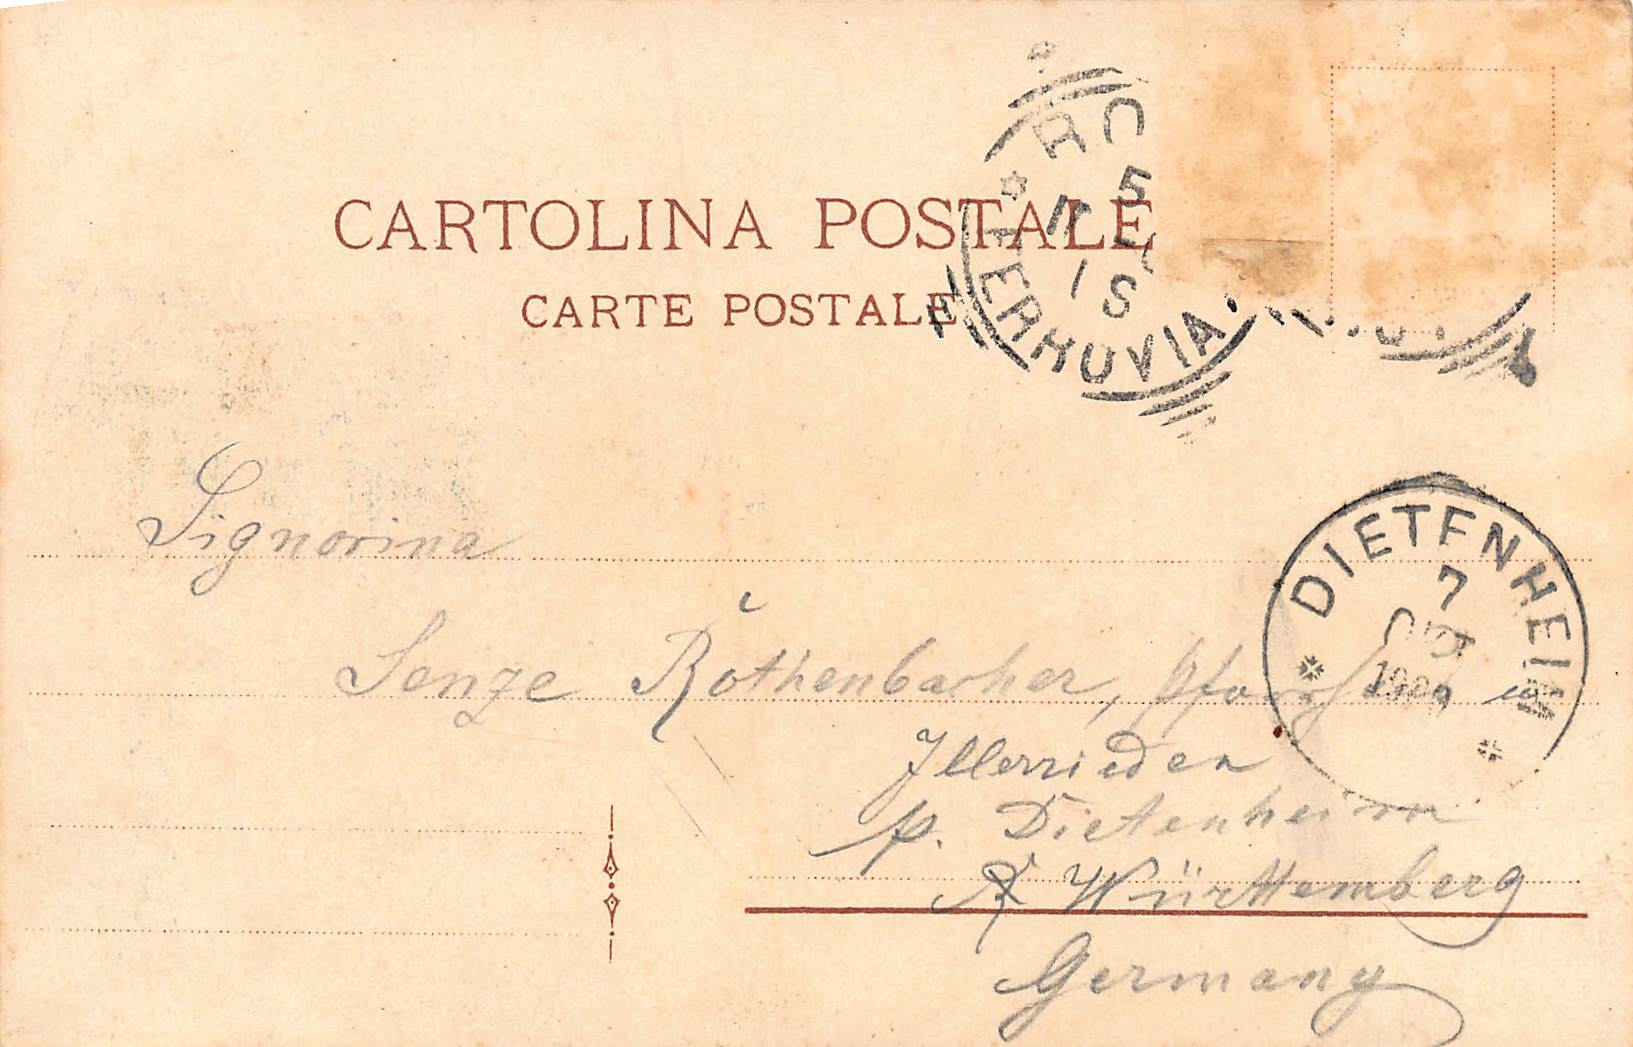 CARTOLINA POSTALE
CARTE POSTALE
FERRUVIA
DIETENHEIM
7
Signorina
Senze Rothenbacher,
Illerrieden
p. Dietenheim
Württemberg
Germany